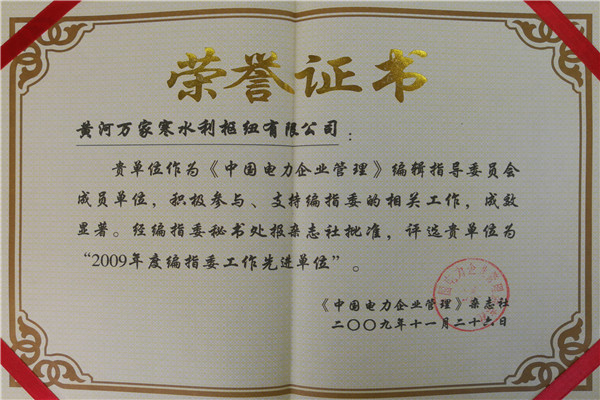 荣誉证书
黄河万家寨水利枢纽有限公司：
贵单位作为《中国电力企业管理》编辑指导委员会
成员单位，积极参与、支持编指委的相关工作，成效
显著。经编指委秘书处报杂志社批准，评选贵单位为
“2009年度编指委工作先进单位”。
《中国电力企业管理》杂志社
二〇〇九年十一月二十六日